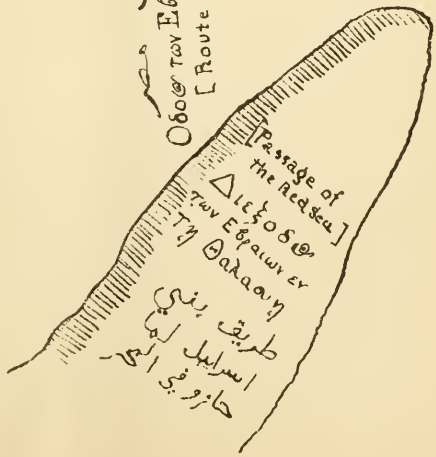 Οδος των Εβ
[Route
[Passage of
the Redsea]
Διεξοδος
των Εβραιων εν
τη Θαλασση
طريق بني
اسرايل لما
جازو في البحر